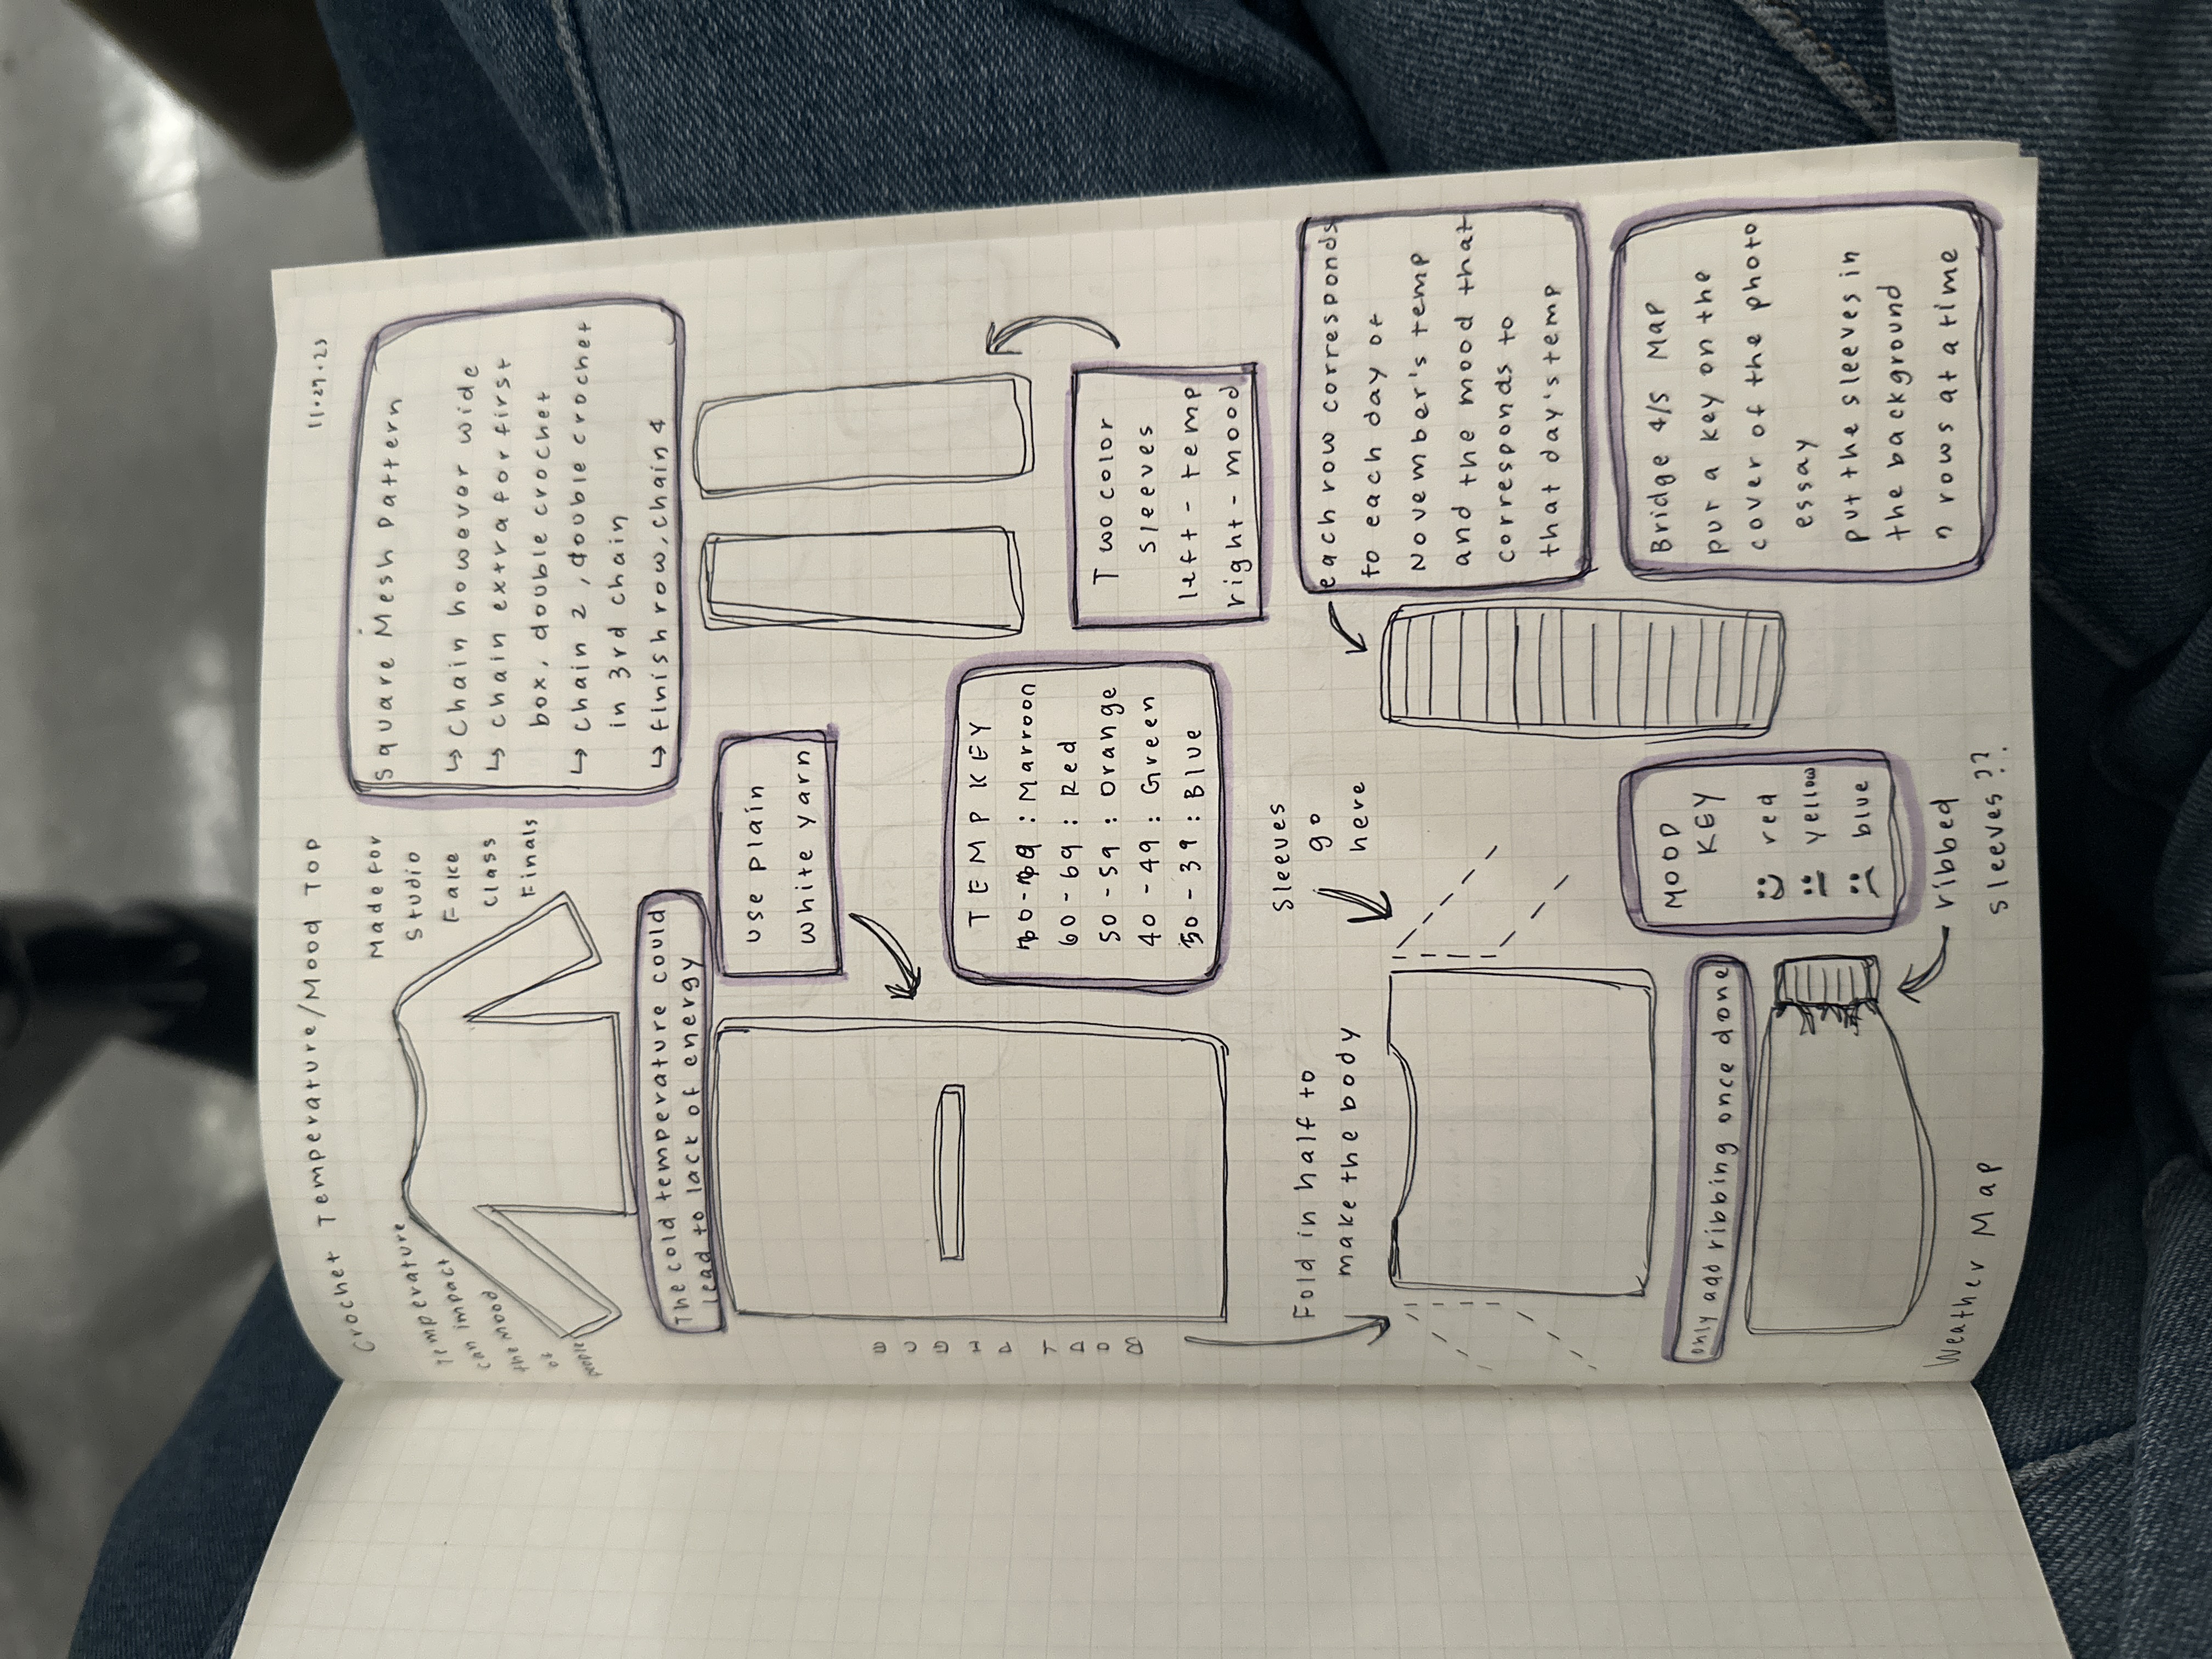 Crochet Temperature/Mood Top
11.29.23
Temperature
can impact
the mood
of
people
Made for
Studio
Fake
Class
Finals
Square Mesh Pattern
↳ Chain however wide
↳ chain extra for first
box, double crochet
↳ chain 2, double crochet
in 3rd chain
↳ finish row, chain 4
The cold temperature could
lead to lack of energy
use plain
white yarn
BODY PIECE
TEMP KEY
: Marroon
60 - 69 : Red
50 - 59 : Orange
40 - 49 : Green
30 - 39 : Blue
Two color
sleeves
left - temp
right - mood
Fold in half to
make the body
Sleeves
go
here
each row corresponds
to each day of
November's temp
and the mood that
corresponds to
that day's temp
only add ribbing once done
MOOD
KEY
red
yellow
blue
Bridge 4/5 Map
put a key on the
cover of the photo
essay
put the sleeves in
the background
rows at a time
ribbed
sleeves??
Weather Map